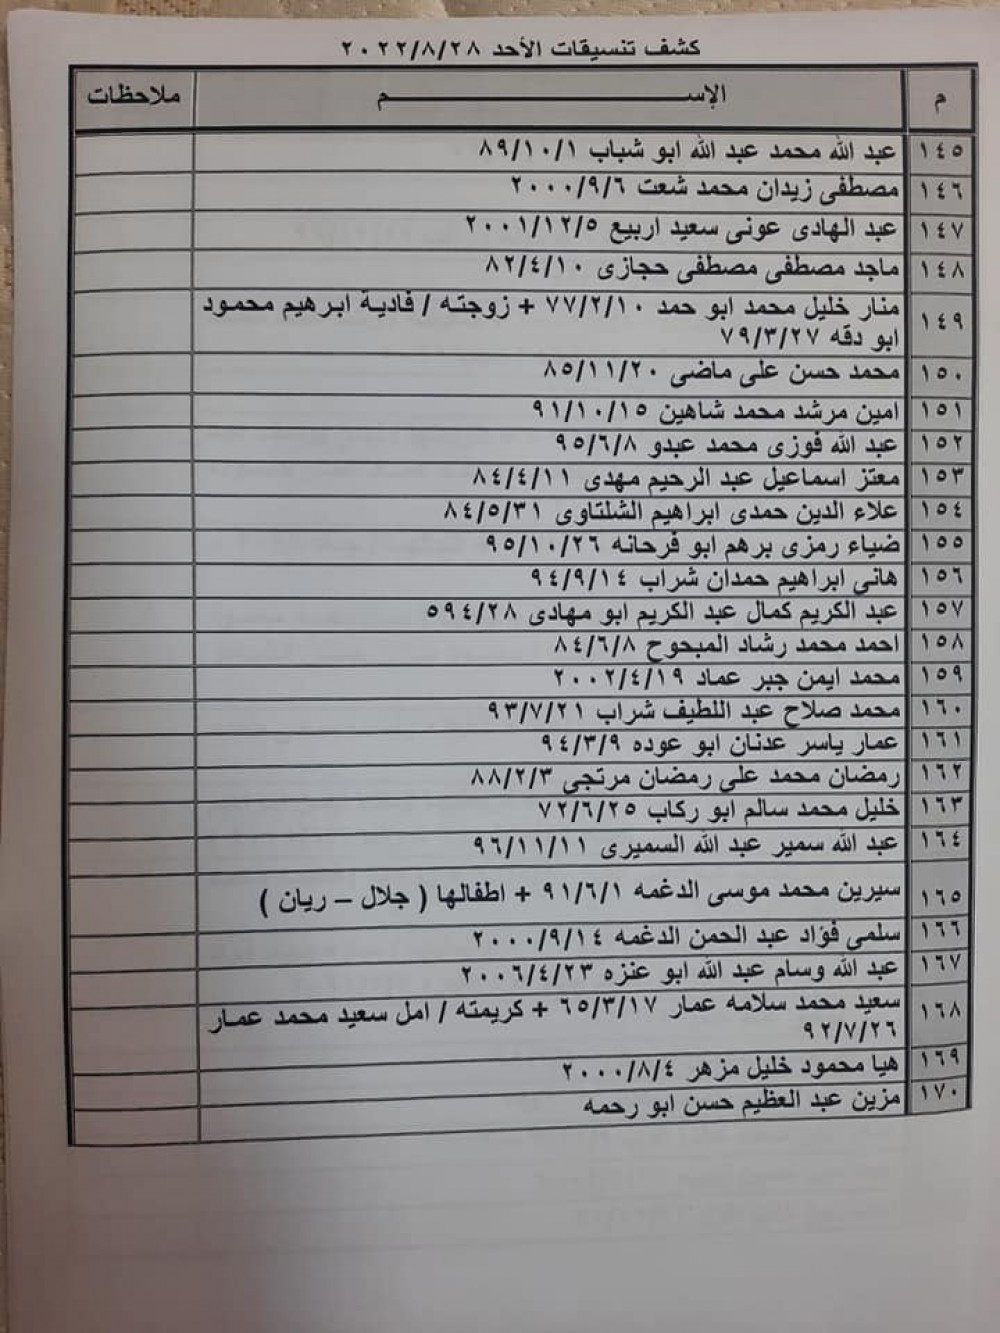 كشف تنسيقات الأحد ٢٠٢٢/٨/٢٨
م الإســـــــم ملاحظات
١٤٥ عبد الله محمد عبد الله ابو شباب ٨٩/١٠/١
١٤٦ مصطفى زيدان محمد شعت ٢٠٠٠/٩/٦
١٤٧ عبد الهادى عونى سعيد اربيع ٢٠٠١/١٢/٥
١٤٨ ماجد مصطفى مصطفى حجازى ٨٢/٤/١٠
١٤٩ منار خليل محمد ابو حمد ٧٧/٢/١٠ + زوجته / فادية ابرهيم محمود
ابو دقه ٧٩/٣/٢٧
١٥٠ محمد حسن على ماضى ٨٥/١١/٢٠
١٥١ امين مرشد محمد شاهين ٩١/١٠/١٥
١٥٢ عبد الله فوزى محمد عبدو ٩٥/٦/٨
١٥٣ معتز اسماعيل عبد الرحيم مهدى ٨٤/٤/١١
١٥٤ علاء الدين حمدى ابراهيم الشلتاوى ٨٤/٥/٣١
١٥٥ ضياء رمزى برهم ابو فرحانه ٩٥/١٠/٢٦
١٥٦ هانى ابراهيم حمدان شراب ٩٤/٩/١٤
١٥٧ عبد الكريم كمال عبد الكريم ابو مهادى ٥٩٤/٢٨
١٥٨ احمد محمد رشاد المبحوح ٨٤/٦/٨
١٥٩ محمد ايمن جبر عماد ٢٠٠٢/٤/١٩
١٦٠ محمد صلاح عبد اللطيف شراب ٩٣/٧/٢١
١٦١ عمار ياسر عدنان ابو عوده ٩٤/٣/٩
١٦٢ رمضان محمد على رمضان مرتجى ٨٨/٢/٣
١٦٣ خليل محمد سالم ابو ركاب ٧٢/٦/٢٥
١٦٤ عبد الله سمير عبد الله السميرى ٩٦/١١/١١
١٦٥ سيرين محمد موسى الدغمه ٩١/٦/١ + اطفالها ( جلال – ريان )
١٦٦ سلمى فؤاد عبد الحمن الدغمه ٢٠٠٠/٩/١٤
١٦٧ عبد الله وسام عبد الله ابو عنزه ٢٠٠٦/٤/٢٣
١٦٨ سعيد محمد سلامه عمار ٦٥/٣/١٧ + كريمته / امل سعيد محمد عمار
٩٢/٧/٢٦
١٦٩ هيا محمود خليل مزهر ٢٠٠٠/٨/٤
١٧٠ مزين عبد العظيم حسن ابو رحمه